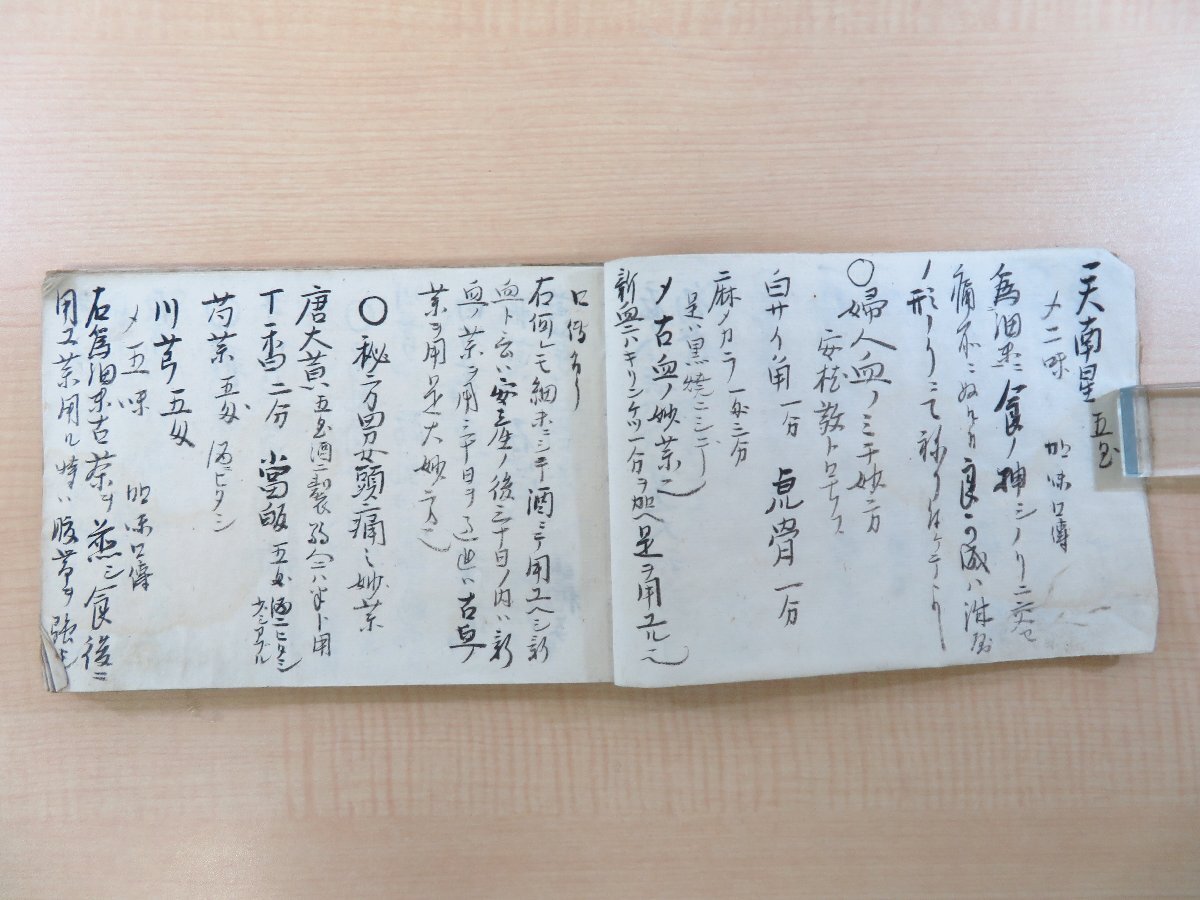 天南星 五匁
〆二味 加味口傳
為細末 食ノ押シノリニ交セ
痛所ニぬるなり 良
ノ形りにて
○婦人血ノミチ妙方
安桂散トロナス
白サイ角 一分 虎骨 一分
麻ノカラ 一匁二分
是ハ黒焼ニシテ
〆 古血ノ妙薬也
新血ニハキリンケツ一分ヲ加ヘ是ヲ用ユル也
口傳あり
右何レモ細末ニシテ酒ニテ用ユヘシ新
血ト云ハ安産ノ後三十日ノ内ハ新
血ノ薬ヲ用三十日ヲ過レハ古血ノ
薬ヲ用是大妙方也
○秘方男女頭痛之妙薬
唐大黄 五匁 酒ニ製
丁香 二分 當皈 五匁 酒ニヒタシ
芍薬 五匁 酒ニヒタシ
川芎 五匁
〆五味 加味口傳
右為細末古茶ヲ煎シ食後ニ
用ユ薬用ル時ハ